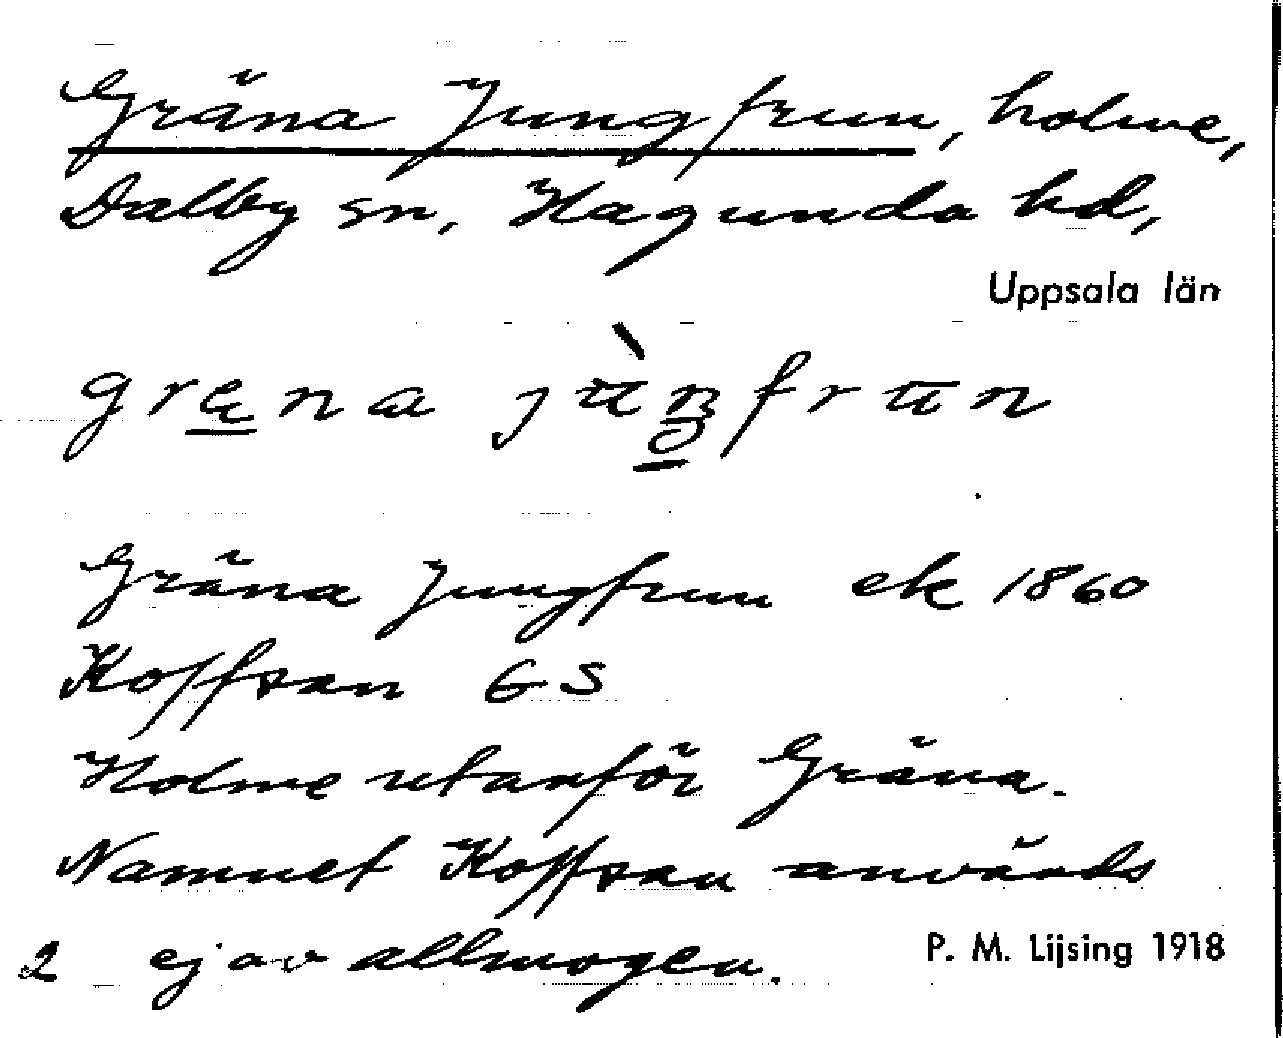 Gräna Jungfrun, holme,
Dalby sn, Hagunda hd,
Uppsala län
gräna jùŋfrun
Gräna Jungfrun ek 1860
Koffsan GS
Holme utanför Gräna.
Namnet Koffsan används
2 ej av allmogen.
P. M. Lijsing 1918